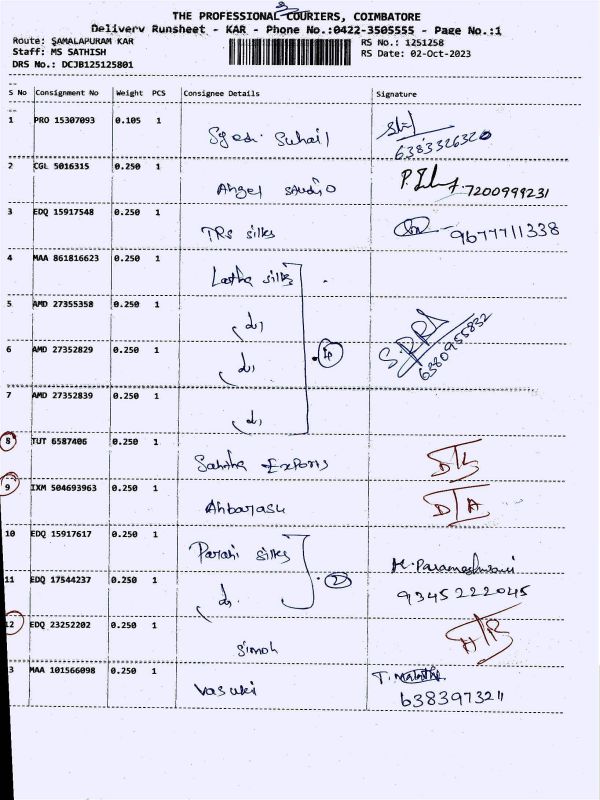 THE PROFESSIONAL COURIERS, COIMBATORE
Delivery Runsheet - KAR - Phone No.:0422-3505555 - Page No.:1
Route: SAMALAPURAM KAR
RS No.: 1251258
Staff: MS SATHISH
RS Date: 02-Oct-2023
DRS No.: DCJB125125801
S No Consignment No Weight PCS Consignee Details Signature
1 PRO 15307093 0.105 1 Syed. Suhail
6383326320
2 CGL 5016315 0.250 1 Angel studio 7200999231
3 EDQ 15917548 0.250 1 TRS silks 9677711338
4 MAA 861816623 0.250 1 Latha silks
5 AMD 27355358 0.250 1 do
6 AMD 27352829 0.250 1 do 4 6380955832
7 AMD 27352839 0.250 1 do
8 TUT 6587406 0.250 1 Exports D/L
9 IXM 504693963 0.250 1 Anbarasu D/A
10 EDQ 15917617 0.250 1 silks M. Parameshwari
11 EDQ 17544237 0.250 1 do 2 9345222045
12 EDQ 23252202 0.250 1 Simoh
3 MAA 101566098 0.250 1 Vasuki T. Malathi
6383973211